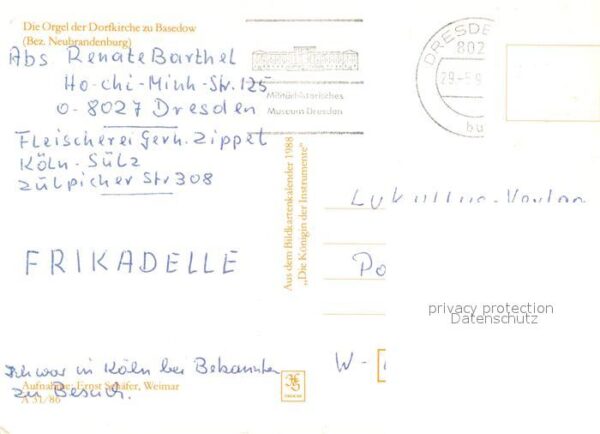 Die Orgel der Dorfkirche zu Basedow
(Bez. Neubrandenburg)
Abs Renate Barthel
Ho-chi-Minh-Str. 125
O-8027 Dresden
Fleischerei Gerh. Zippel
Köln-Sülz
Zülpicher Str 308
FRIKADELLE
Ich war in Köln bei Bekannten
zu Besuch.
Aufnahme: Ernst Schäfer, Weimar
A 31/86
Militärhistorisches
Museum Dresden
DRESDE
802
29.-5.9
bu
Aus dem Bildkartenkalender 1988
„Die Königin der Instrumente“
Lukullus-Verlag
Po
W-
privacy protection
Datenschutz